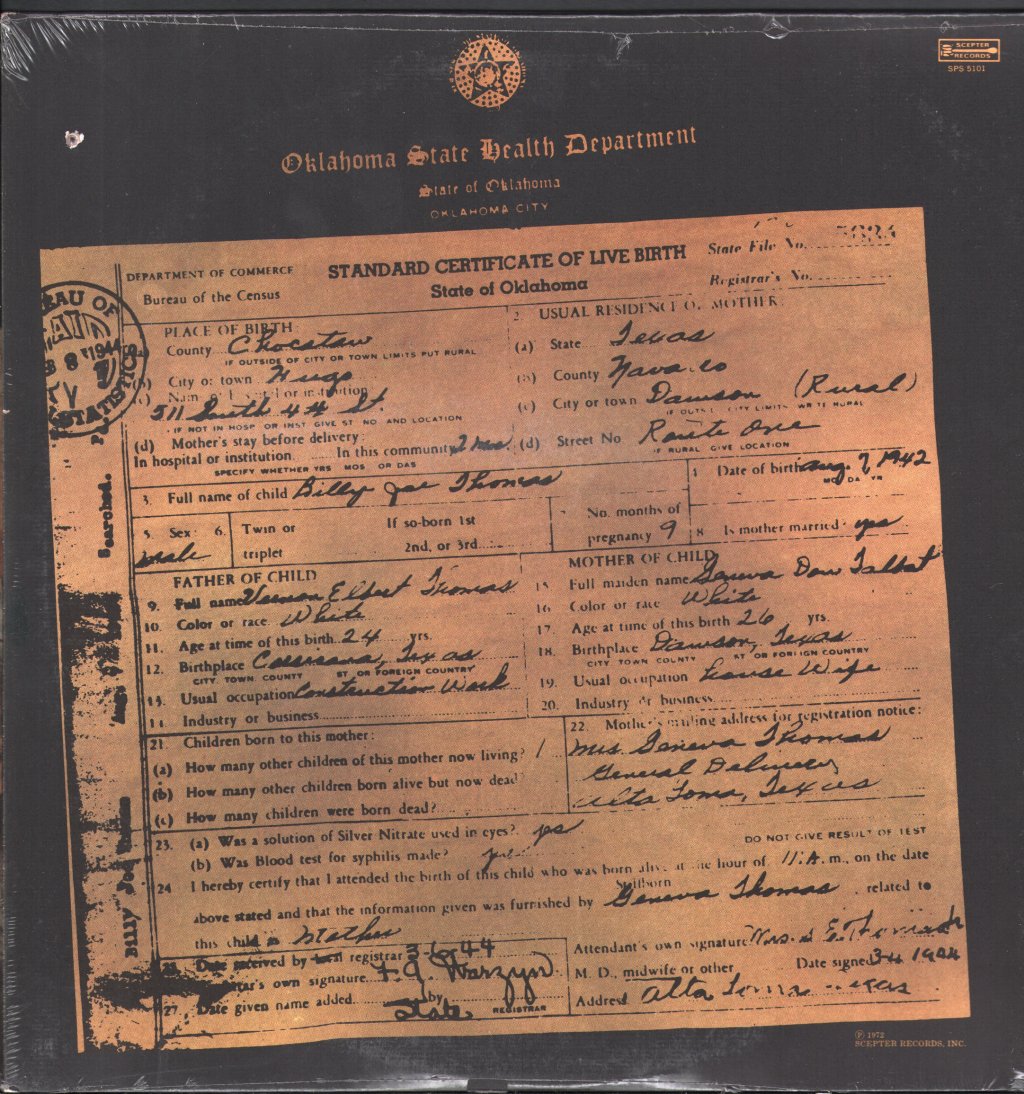 SCEPTER
RECORDS
SPS 5101
Oklahoma State Health Department
State of Oklahoma
OKLAHOMA CITY
DEPARTMENT OF COMMERCE
Bureau of the Census
STANDARD CERTIFICATE OF LIVE BIRTH
State of Oklahoma
State File No.
Registrar's No.
BUREAU OF
8 1944
STATISTICS
PLACE OF BIRTH:
County Choctaw
IF OUTSIDE OF CITY OR TOWN LIMITS PUT RURAL
(b) City or town Hugo
(c) Name of Hospital or institution
511 South 4th St.
IF NOT IN HOSP OR INST GIVE ST NO AND LOCATION
(d) Mother's stay before delivery:
In hospital or institution In this community 2 mos.
SPECIFY WHETHER YRS MOS OR DAS
2 USUAL RESIDENCE OF MOTHER:
(a) State Texas
(b) County Navarro
(c) City or town Dawson (Rural)
IF OUTSIDE CITY LIMITS WRITE RURAL
(d) Street No Route One
IF RURAL GIVE LOCATION
3. Full name of child Billy Joe Thomas
4 Date of birth Aug. 7, 1942
MO DA YR
5. Sex:
male
6. Twin or
triplet
If so-born 1st
2nd, or 3rd
7 No. months of
pregnancy 9
8 Is mother married? yes
FATHER OF CHILD
9. Full name Vernon Elbert Thomas
10. Color or race White
11. Age at time of this birth 24 yrs.
12. Birthplace Corsicana, Texas
CITY TOWN COUNTY ST OR FOREIGN COUNTRY
13. Usual occupation Construction Work
14. Industry or business
MOTHER OF CHILD
15 Full maiden name Geneva Dow Talbot
16 Color or race White
17. Age at time of this birth 26 yrs.
18. Birthplace Dawson, Texas
CITY TOWN COUNTY ST OR FOREIGN COUNTRY
19. Usual occupation House Wife
20. Industry or business
21. Children born to this mother:
(a) How many other children of this mother now living? 1
(b) How many other children born alive but now dead?
(c) How many children were born dead?
22. Mother's mailing address for registration notice:
Mrs Geneva Thomas
General Delivery
Alta Loma, Texas
23. (a) Was a solution of Silver Nitrate used in eyes? yes
DO NOT GIVE RESULT OF TEST
(b) Was Blood test for syphilis made? yes
24 I hereby certify that I attended the birth of this child who was born alive at the hour of 11 A.m., on the date
above stated and that the information given was furnished by Geneva Thomas, related to
this child as Mother
Date received by local registrar 3-6-44
own signature F. J. Warzyn
27. Date given name added by State
REGISTRAR
Attendant's own signature Mrs.
M. D., midwife or other Date signed
Address Alta Loma Texas
Searched.
Billy Joe Thomas
Ⓟ 1972
SCEPTER RECORDS, INC.